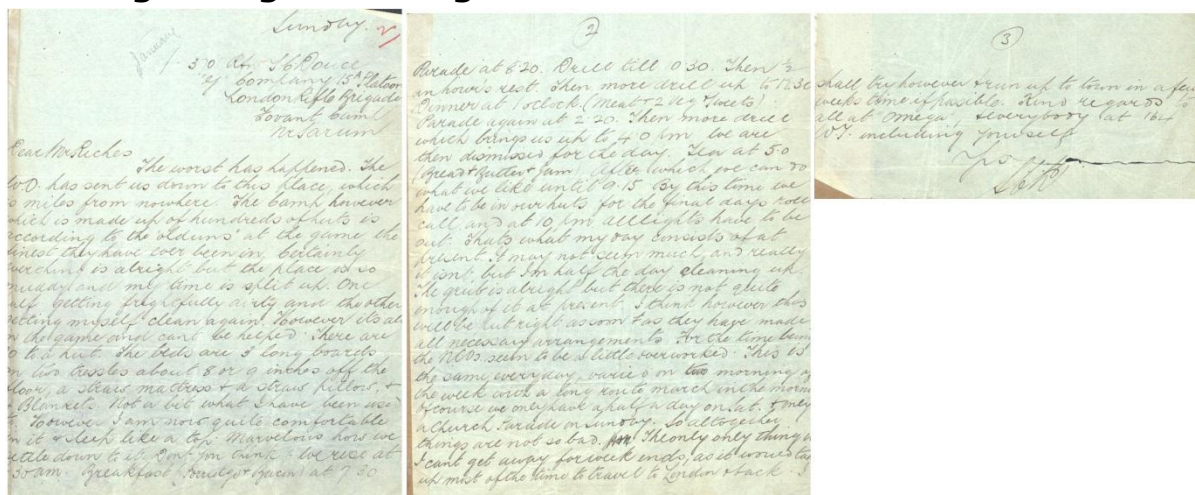 Sunday.
January
Company 15th Platoon
London Rifle Brigade
Fovant Camp
Nr Sarum
Dear Mr Riches
The worst has happened. The
W.O. has sent us down to this place, which
is miles from nowhere. The Camp however
which is made up of hundreds of huts is
according to the 'olduns' at the game the
finest they have ever been in. Certainly
everching is alright but the place is so
muddy and my time is split up. One
half getting frightfully dirty and the other
getting myself clean again. However its all
in the game and cant be helped. There are
to a hut. The beds are 3 long boards
on two tressles about 8 or 9 inches off the
floor, a straw mattress + a straw pillow, +
Blankets. Not a bit what I have been used
to. However I am now quite comfortable
in it + sleep like a top. Marvelous how we
settle down to it dont you think. We rise at
am. Breakfast (Porridge + Bacon) at 7 30
2
Parade at 8.20. Drill till 10 30. Then ½
an hours rest. Then more drill up to 12.30
Dinner at 1 oclock. (Meat + 2 Veg + Sweets)
Parade again at 2 20. Then more drill
which brings us up to 4 0 pm. We are
then dismissed for the day. Tea at 5.0
(Bread + Butter + Jam) After which we can do
what we like until 9.15 By this time we
have to be in our huts for the final days roll
call and at 10 pm all lights have to be
out. Thats what my day consists of at
present. It may not seem much, and really
it isnt, but Im half the day cleaning up.
The grub is alright but there is not quite
enough of it at present. I think however this
will be put right as soon as they have made
all necessary arrangements. For the time being
the NCOs seem to be a little overworked. This is
the same everyday, varied on two morning of
the week with a long route march in the morn
Of course we only have a half a day on Sat. + only
a Church Parade on Sunday. So altogether
things are not so bad. The only only thing is
I cant get away for week ends, as it would take
up most of the time to travel to London + back. I
3
shall try however + run up to town in a few
weeks time if possible. Kind regards to
all at 'Omega', + everybody at 164
including yourself
Yrs